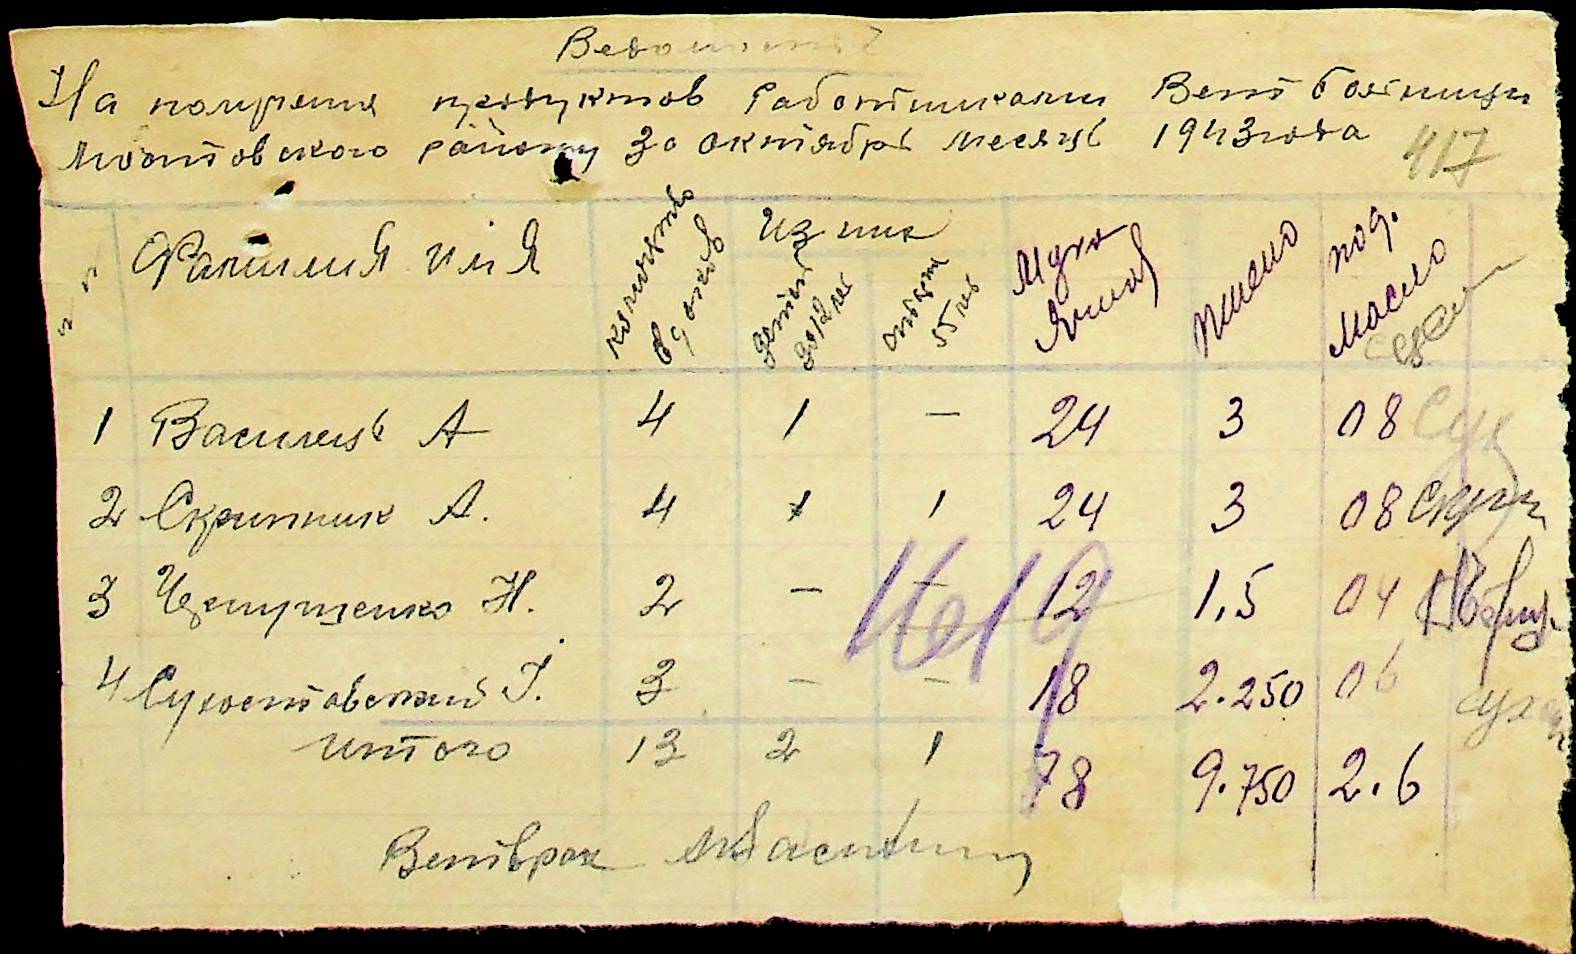 Ведомость
На получения продуктов работниками Ветбольницы
Мостовского району за октябрь месяць 1943 года
417
Фамилия имя
количество едоков
Из них
детей до 12 лет
55 лет
Мука
Пшено
под. масло
1 Василець А 4 1 — 24 3 08
2 Скрипник А. 4 1 1 24 3 08 Скрип
3 Н. 2 — — 12 1,5 04
4 І. 3 — — 18 2.250 06 сухо
итого 13 2 1 78 9.750 2.6
Ветврач